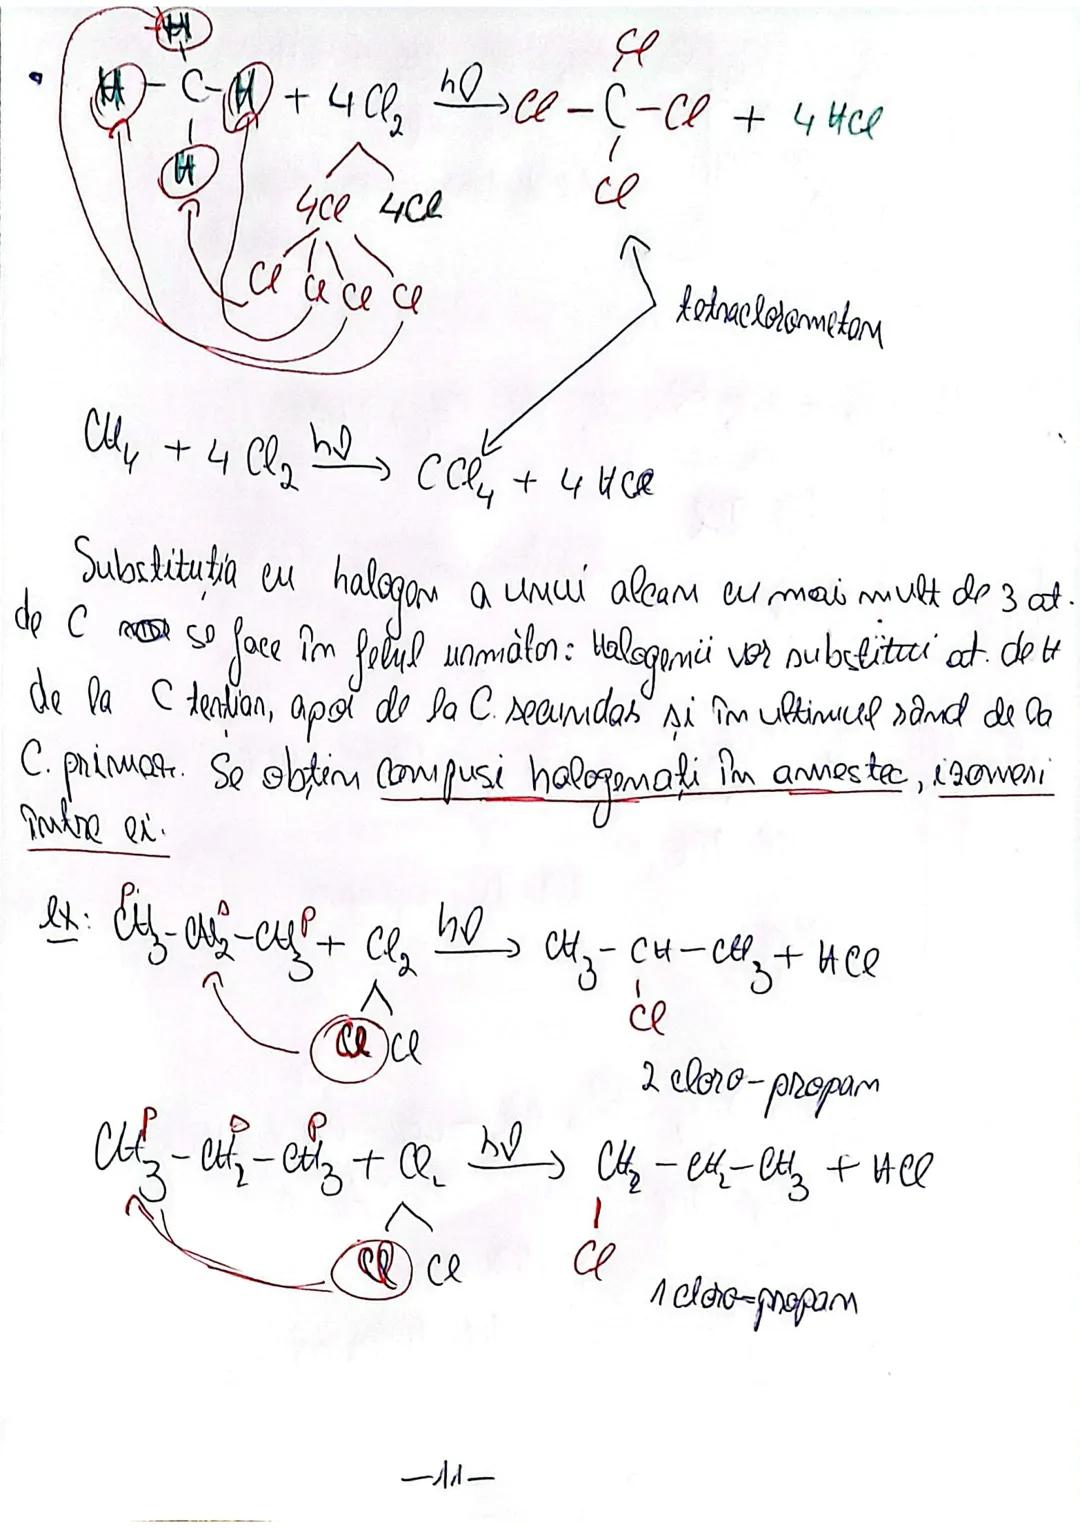 H
H - C - H + 4 Cl2 hν → Cl - C - Cl + 4 HCl
Cl
H
Cl
4Cl 4Cl
Cl Cl Cl Cl
tetraclorometan
CH4 + 4 Cl2 hν → CCl4 + 4 HCl
Substituția cu halogen a unui alcan cu mai mult de 3 at.
de C se face în felul următor: Halogenii vor substitui at. de H
de la C terțiar, apoi de la C. secundar și în ultimul rând de la
C. primar. Se obțin compuși halogenați în amestec, izomeri
între ei.
ex: CH3 - CH2 - CH3 + Cl2 hν → CH3 - CH - CH3 + HCl
P P
Cl
Cl Cl
2 cloro-propan
P P
CH3 - CH2 - CH3 + Cl2 hν → CH2 - CH2 - CH3 + HCl
Cl Cl
Cl
1 cloro-propan
-11-